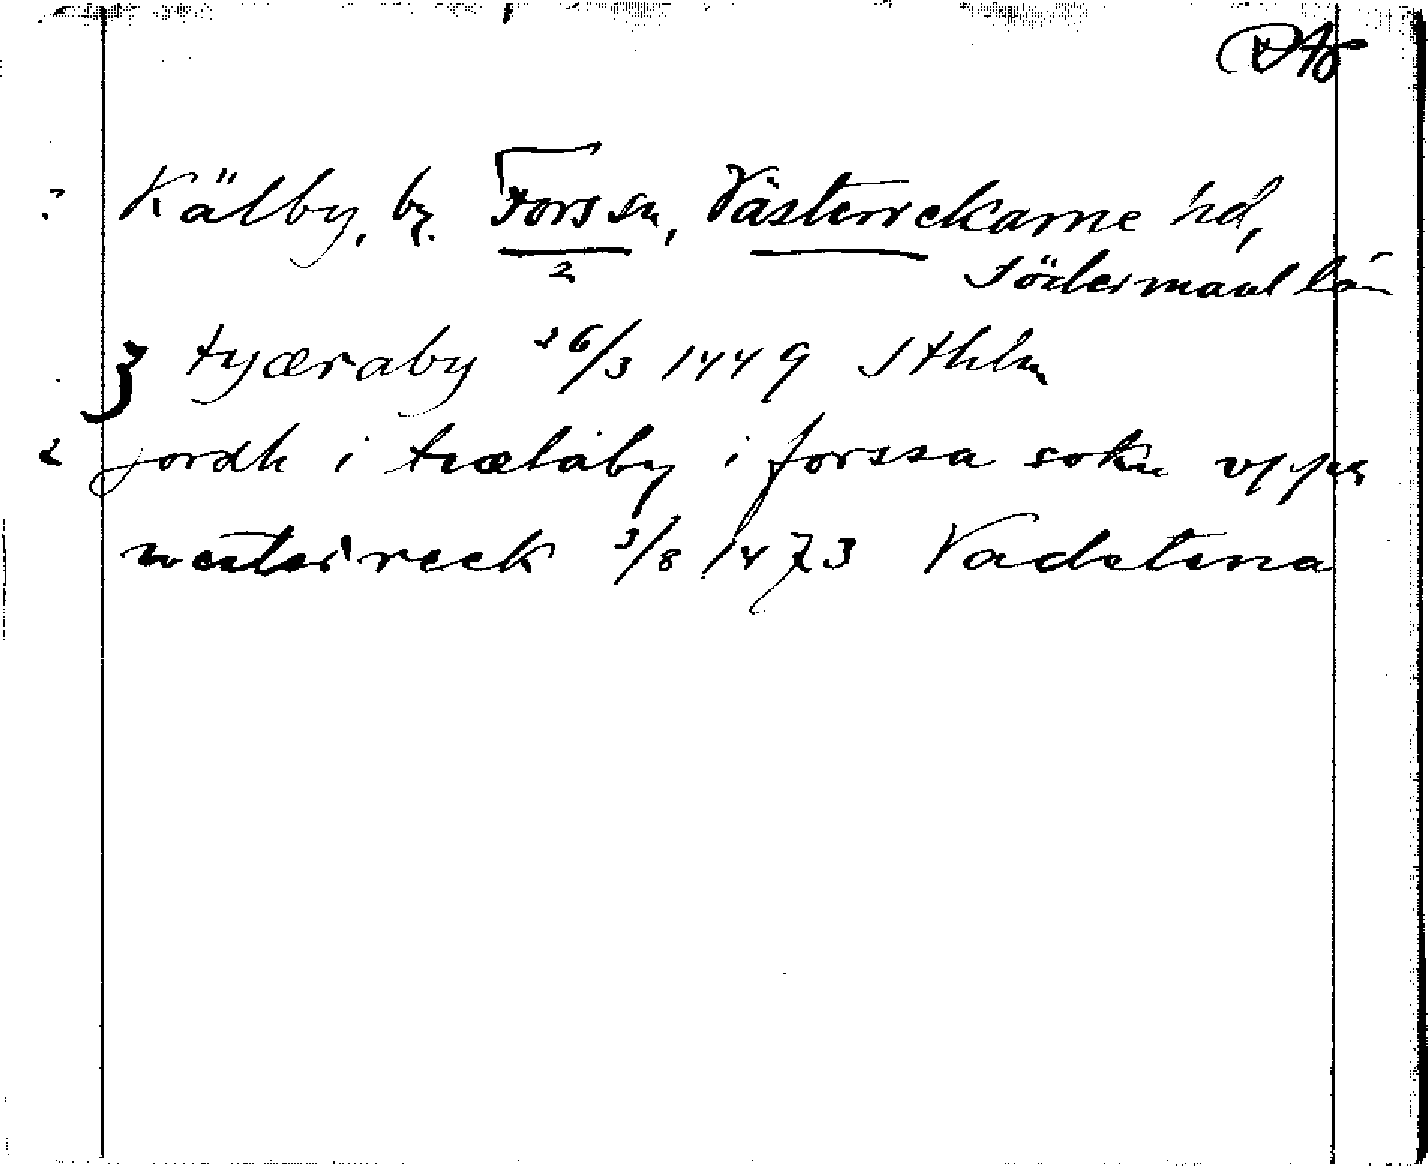 ? Kälby, by. Forssa, Västerrekarne hd,
2
Södermanl län
3 tyæraby 26/3 1449 Sthlm
2 jordh i trælaby i forssa sokn
westerreck 3/8 1473 Vadstena